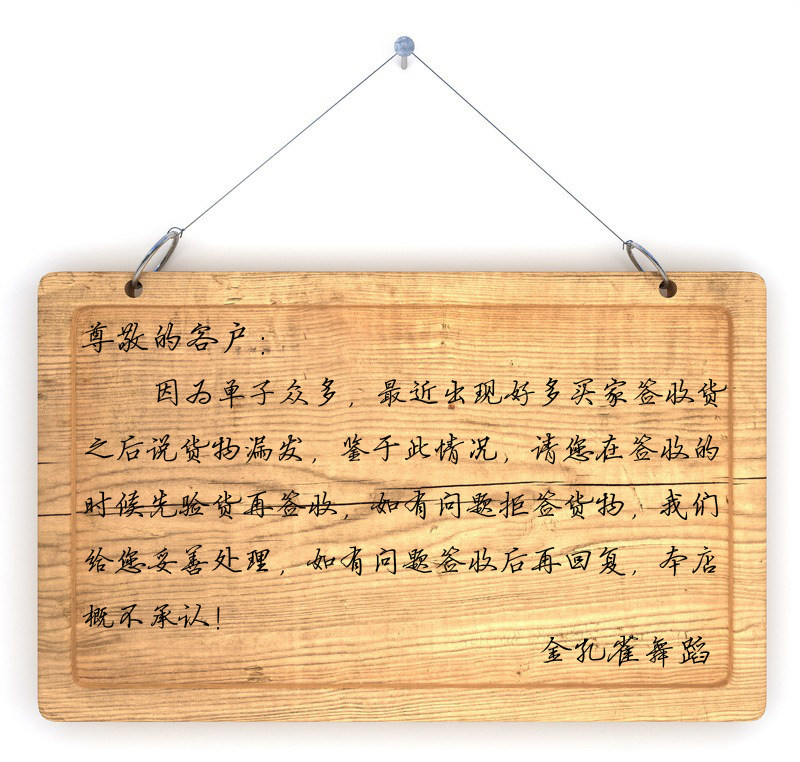 尊敬的客户：
因为单子众多，最近出现好多买家签收货
之后说货物漏发，鉴于此情况，请您在签收的
时候先验货再签收，如有问题拒签货物，我们
给您妥善处理，如有问题签收后再回复，本店
概不承认！
金孔雀舞蹈